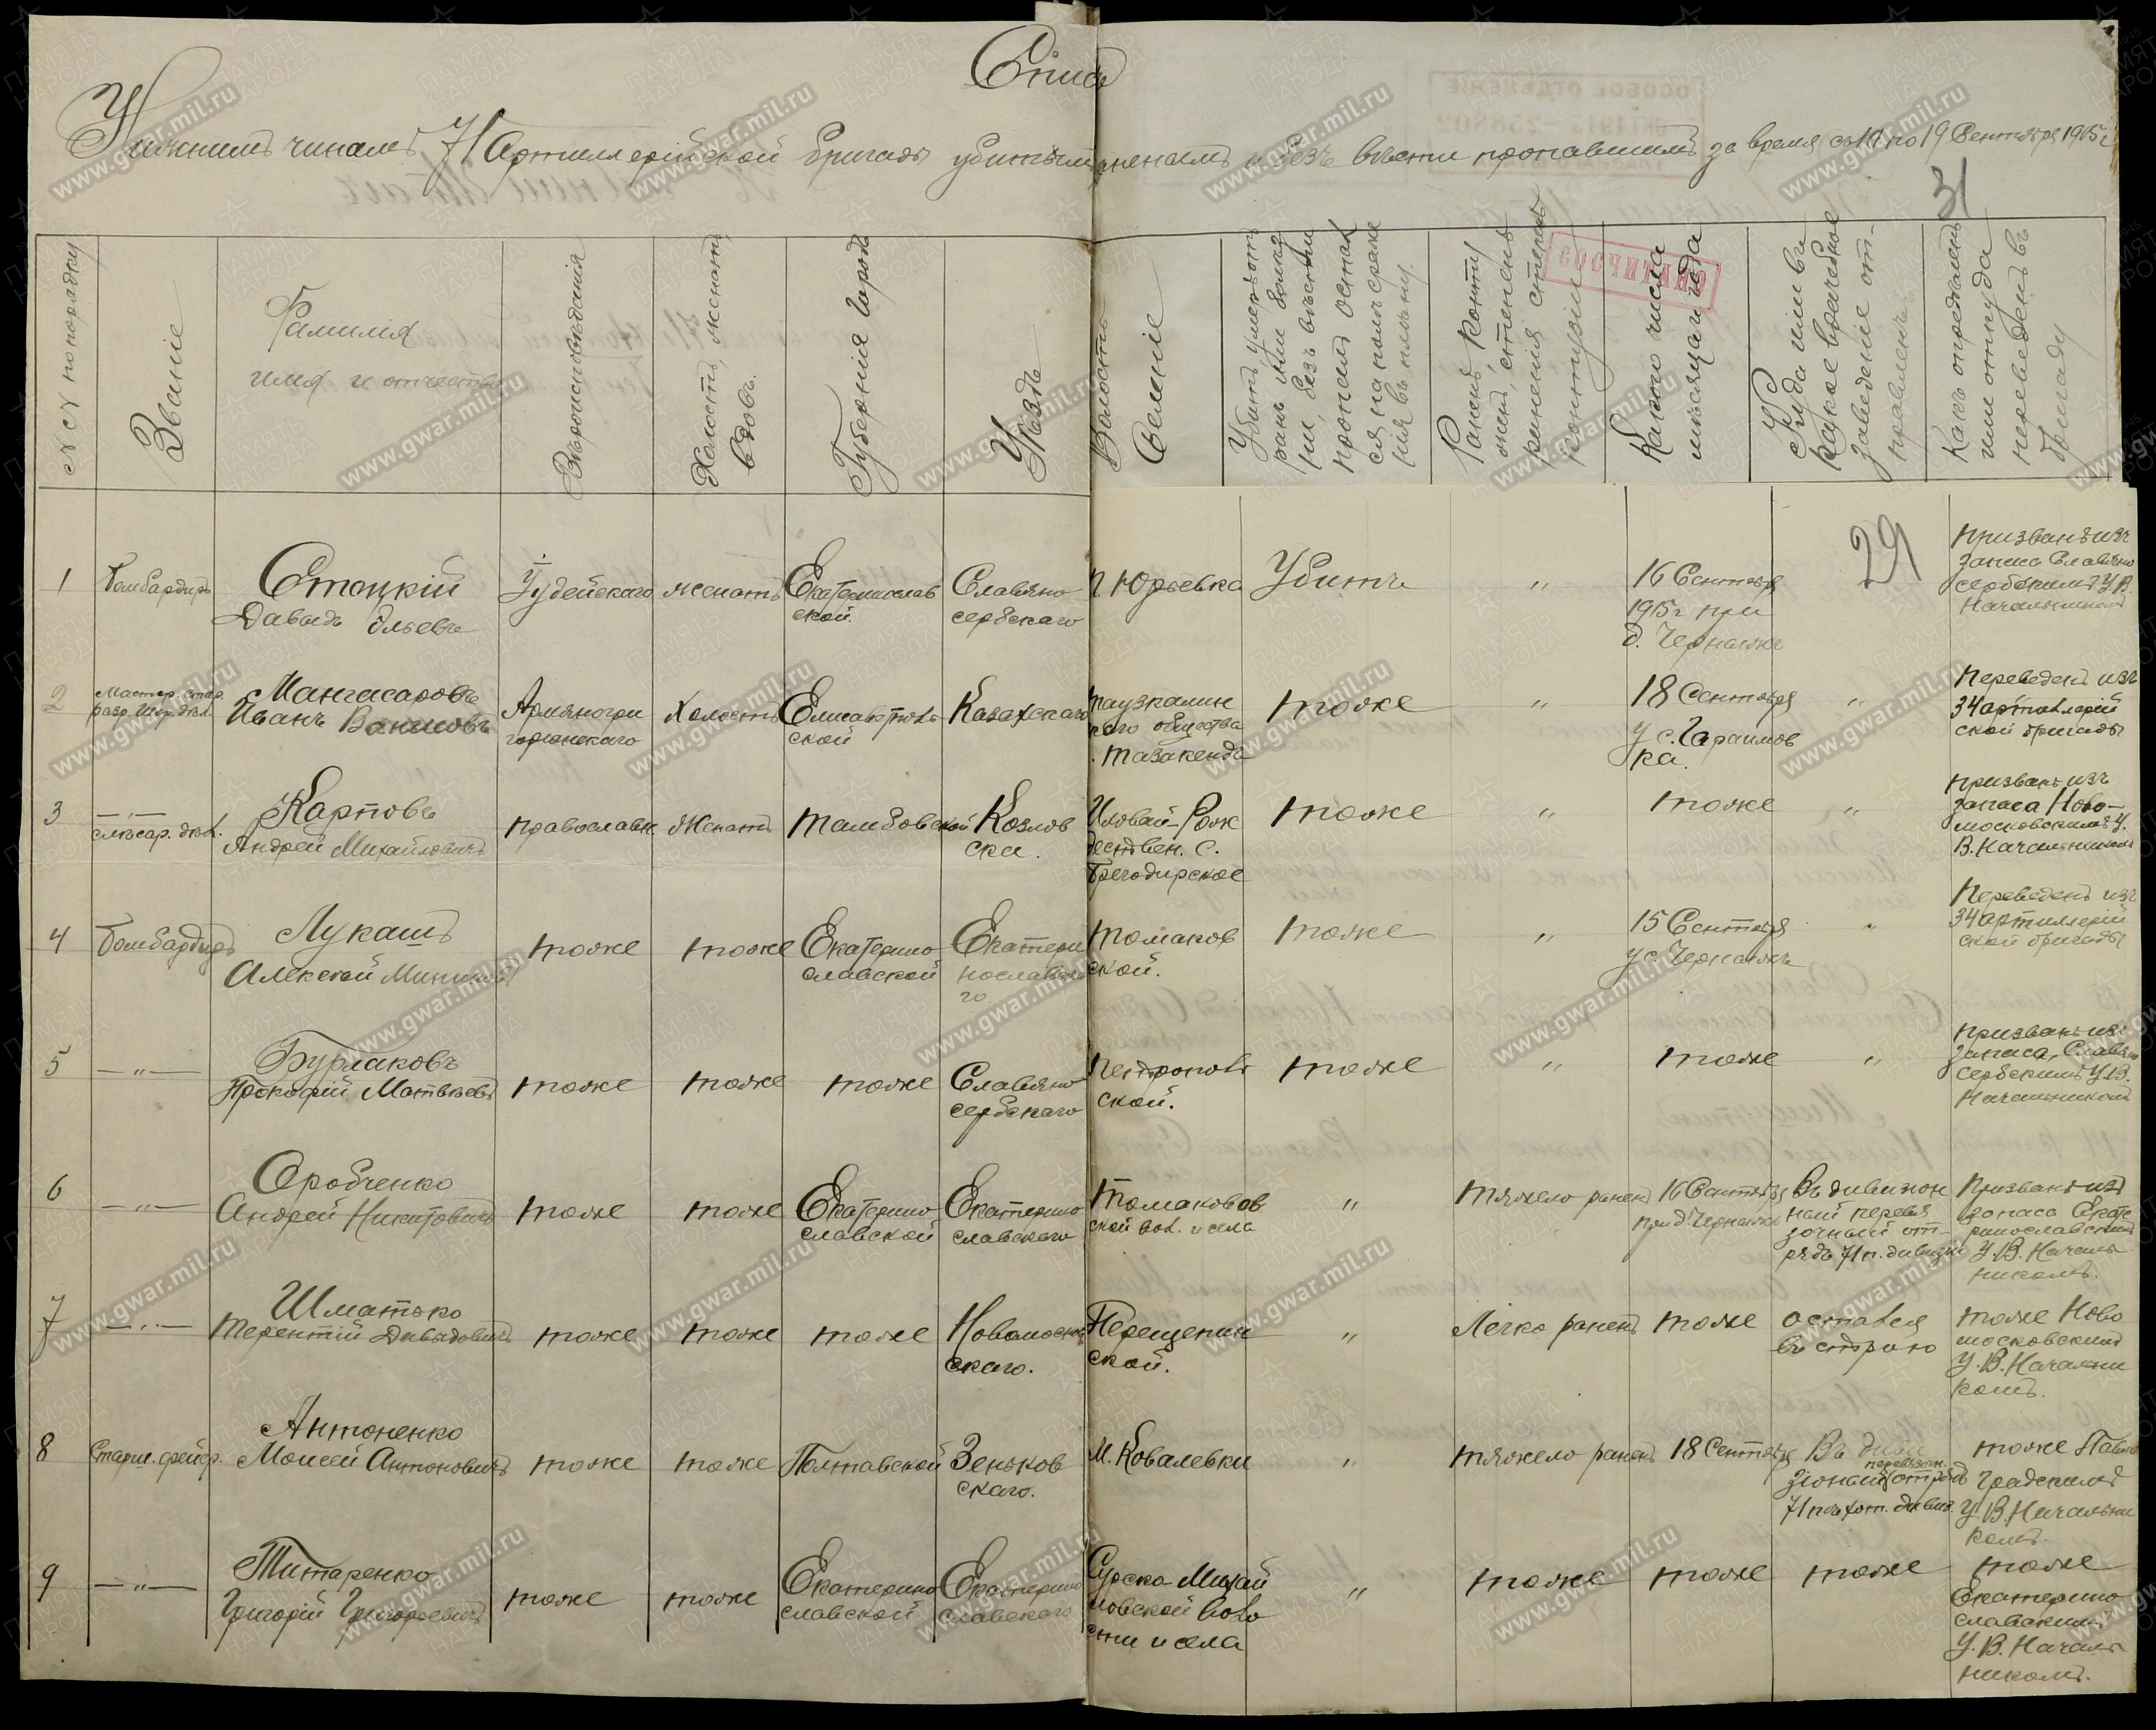 Списо
Нижнимъ чинамъ 71 Артиллерійской бригады убитымъ раненамъ и безъ вѣсти пропавшимъ за время съ 10 по 19 Сентября 1915 г
31
№№ по порядку
Званіе
Фамилія
имя и отчество
Вѣроисповѣданія
Холостъ, женатъ,
вдовъ.
Губернія Городъ
Уѣздъ
Волость
Селеніе
Убитъ умеръ отъ
ранъ или
безъ вѣсти
пропалъ остал
ся на полѣ сраже
нія въ плѣну.
Раненъ, конту
женъ, степень
раненія степень
контузіи
Какого числа
мѣсяца и года
Куда или въ
какое врачебное
заведеніе от-
правленъ.
Какъ опредѣленъ
или откуда
переведенъ въ
бригаду
29
1
Бомбардиръ
Стоцкій
Давыдъ Эльевъ
Іудейскаго
женатъ
Екатеринослав
ской.
Славяно
сербскаго
п. Юрьевка
Убитъ
"
16 Сентября
1915 г при
д. Чернаяхъ
Призванъ изъ
запаса Славяно
сербскимъ У.В.
Начальникомъ
2
Мастер. стар.
Мангасаровъ
Иванъ Вановъ
Армяногри
горіанскаго
Холостъ
Елисаветполь
ской
Казахскаго
таузкалин
скаго общества
. Тазакендъ
тоже
"
18 Сентября
у с. Гараимов
ка.
"
Переведенъ изъ
34 артиллерій
ской бригады
3
—"—
слѣсар. дѣл.
Карповъ
Андрей Михайловичъ
православн.
Женатъ
Тамбовской
Козлов
ска.
Иловай-Рож
дествен. с.
тоже
"
тоже
"
Призванъ изъ
запаса Ново-
московскимъ У.
В. Начальникомъ
4
Бомбардиръ
Лукашъ
Алексѣй
тоже
тоже
Екатерино
славской
Екатери
нославска
го
Томаков
ской.
тоже
"
15 Сентября
у с. Чернаяхъ
"
Переведенъ изъ
34 артиллерій
ской бригады
5
—"—
Бурлаковъ
Прокофій Матвѣевъ
тоже
тоже
тоже
Славяно
сербскаго
ской.
тоже
"
тоже
"
Призванъ изъ
запаса, Славяно
сербскимъ У.В.
Начальникомъ
6
—"—
Оробченко
Андрей Никитовичъ
тоже
тоже
Екатерино
славской
Екатерино
славскаго
Томаковов
ской вол. и села
"
Тяжело раненъ
16 Сентября
при д. Чернаяхъ
Въ дивизіон
ный перевя
зочный от-
рядъ 71 п. дивизіи
Призванъ изъ
запаса Екате
ринославскимъ
У.В. Началь
никомъ.
7
—"—
Шматько
Терентій Давыдовичъ
тоже
тоже
тоже
Новомосков
скаго.
Перещепин
ской.
"
Легко раненъ
тоже
остался
въ строю
тоже Ново
московскимъ
У.В. Начальни
комъ.
8
Старш. фейер.
Антоненко
Моисей Антоновичъ
тоже
тоже
Полтавской
Зеньков
скаго.
М. Ковалевки
"
тяжело раненъ
18 Сентября
Въ диви
перевязоч.
зіонный отрядъ
71 пѣхот. дивиз.
тоже Павло
градскимъ
У.В. Начальни
комъ.
9
—"—
Титаренко
Григорій Григорьевичъ
тоже
тоже
Екатерино
славской
Екатерино
славскаго
Сурско-Михай
ловской воло
сти и села
"
тоже
тоже
тоже
тоже
Екатерино
славскимъ
У.В. Началь
никомъ.